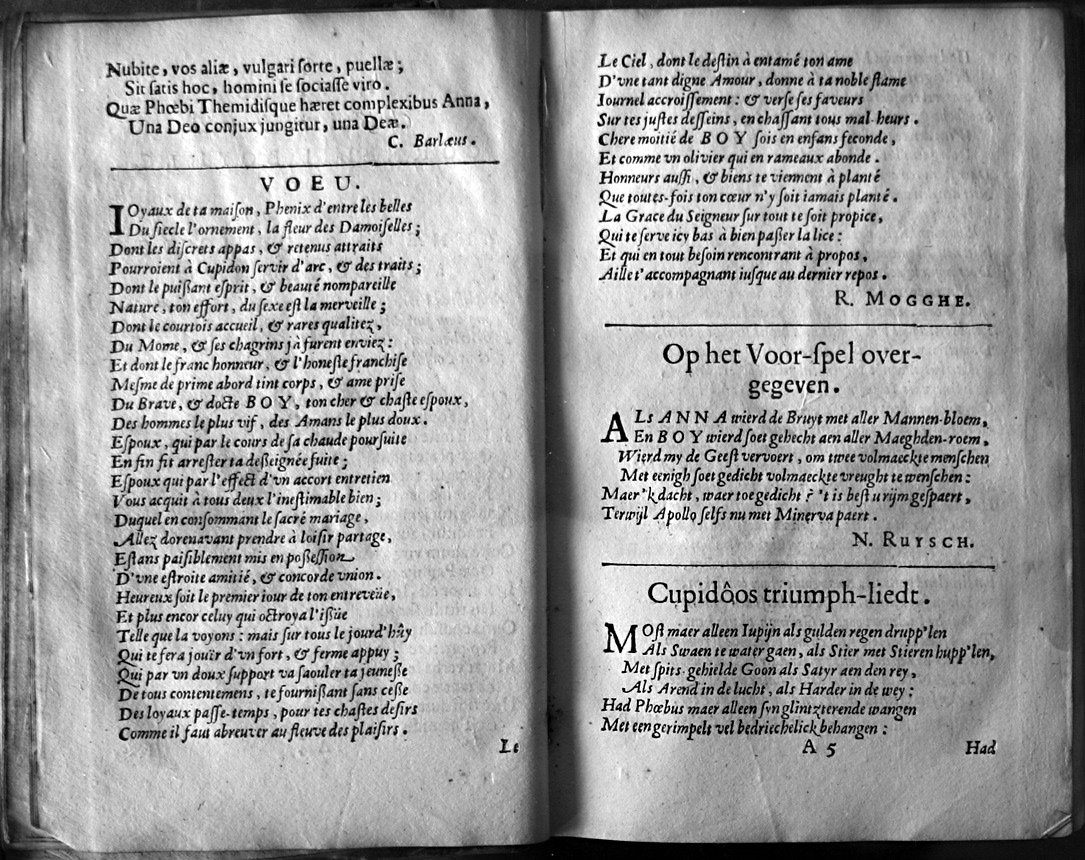 Nubite, vos aliæ, vulgari ſorte, puellæ;
Sit ſatis hoc, homini ſe ſociaſſe viro.
Quæ Phœbi Themidiſque hæret complexibus Anna,
Una Deo conjux jungitur, una Deæ.
C. Barlæus.
VOEU.
IOyaux de ta maiſon, Phenix d'entre les belles
Du ſiecle l'ornement, la fleur des Damoiſelles;
Dont les diſcrets appas, & retenus attraits
Pourroient à Cupidon ſervir d'arc, & des traits;
Dont le puißant eſprit, & beauté nompareille
Nature, ton effort, du ſexe eſt la merveille;
Dont le courtois accueil, & rares qualitez,
Du Mome, & ſes chagrins jà furent enviez:
Et dont le franc honneur, & l'honeſte franchiſe
Meſme de prime abord tint corps, & ame priſe
Du Brave, & docte BOY, ton cher & chaſte eſpoux,
Des hommes le plus vif, des Amans le plus doux.
Eſpoux, qui par le cours de ſa chaude pourſuite
En fin fit arreſter ta deßeignée fuite;
Eſpoux qui par l'effect d'vn accort entretien
Vous acquit à tous deux l'ineſtimable bien;
Duquel en conſommant le ſacré mariage,
Allez dorenavant prendre à loiſir partage,
Eſtans paiſiblement mis en poßeſſion
D'vne eſtroite amitié, & concorde vnion.
Heureux ſoit le premier iour de ton entreveüe,
Et plus encor celuy qui octroya l'ißüe
Telle que la voyons: mais ſur tous le jourd'hûy
Qui te fera jouïr d'vn fort, & ferme appuy;
Qui par vn doux ſupport va ſaouler ta jeuneße
De tous contentemens, te fournißant ſans ceße
Des loyaux paſſe-temps, pour tes chaſtes deſirs
Comme il faut abreuver au fleuve des plaiſirs.
Le
Le Ciel, dont le deſtin à entamé ton ame
D'vne tant digne Amour, donne à ta noble flame
Iournel accroiſſement: & verſe ſes faveurs
Sur tes juſtes deſſeins, en chaſſant tous mal-heurs.
Chere moitié de BOY ſois en enfans feconde,
Et comme vn olivier qui en rameaux abonde.
Honneurs auſſi, & biens te viennent à planté
Que toutes-fois ton cœur n'y ſoit iamais planté.
La Grace du Seigneur ſur tout te ſoit propice,
Qui te ſerve icy bas à bien paßer la lice:
Et qui en tout beſoin rencontrant à propos,
Aille t'accompagnant iuſque au dernier repos.
R. MOGGHE.
Op het Voor-ſpel over-
gegeven.
ALs ANNA wierd de Bruyt met aller Mannen-bloem,
En BOY wierd ſoet gehecht aen aller Maeghden-roem,
Wierd my de Geeſt vervoert, om twee volmaeckte menſchen
Met eenigh ſoet gedicht volmaeckte vreught te wenſchen:
Maer 'k dacht, waer toe gedicht? 't is beſt u rijm geſpaert,
Terwijl Apollo ſelfs nu met Minerva paert.
N. RUYSCH.
Cupidôos triumph-liedt.
MOſt maer alleen Iupijn als gulden regen drupp'len
Als Swaen te water gaen, als Stier met Stieren hupp'len,
Met ſpits-gehielde Goon als Satyr aen den rey,
Als Arend in de lucht, als Harder in de wey:
Had Phœbus maer alleen ſyn glintzterende wangen
Met een gerimpelt vel bedriechelick behangen:
A 5
Had